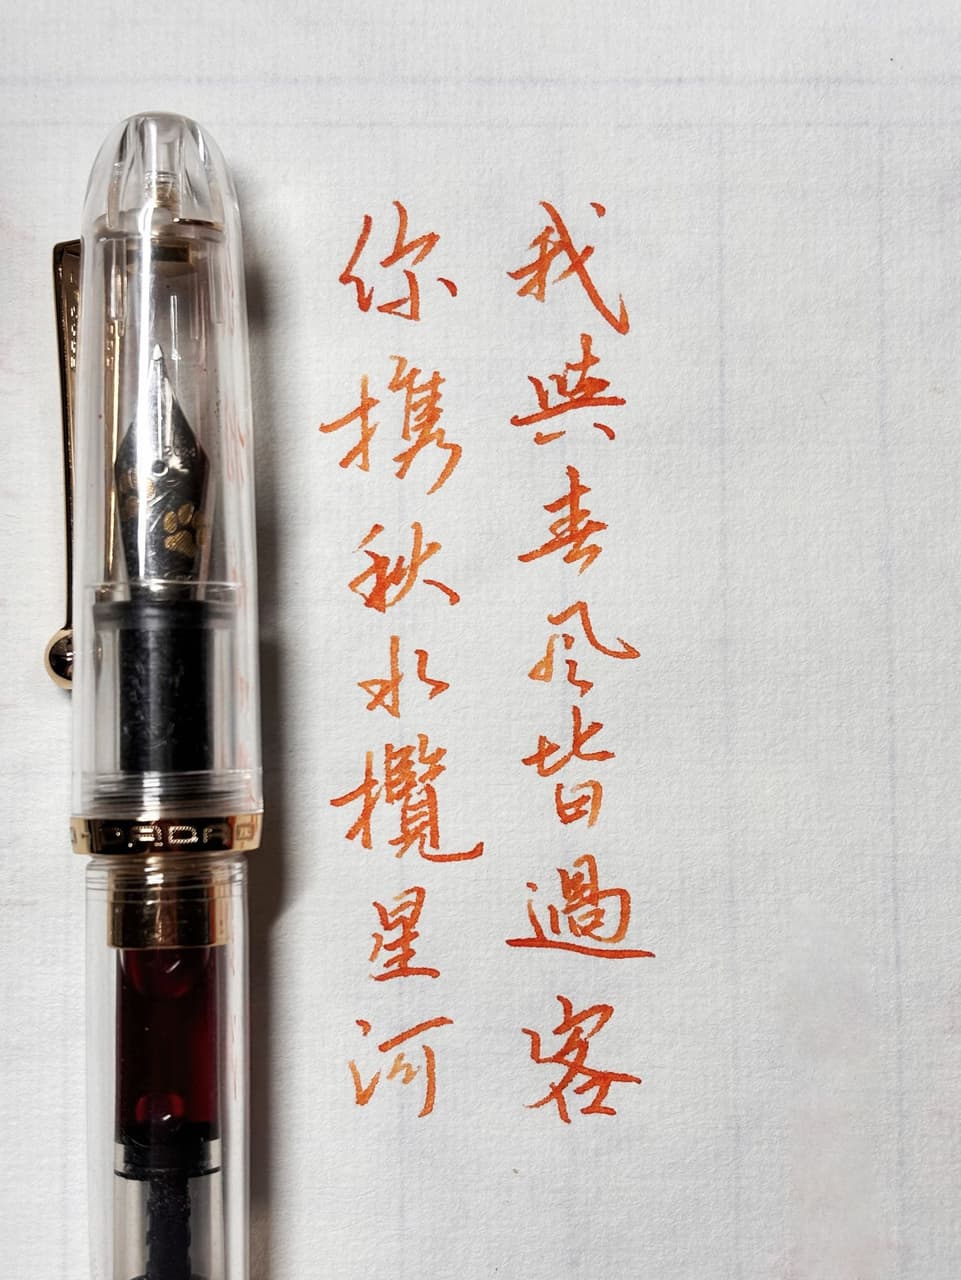 我與春風皆過客
你携秋水攬星河